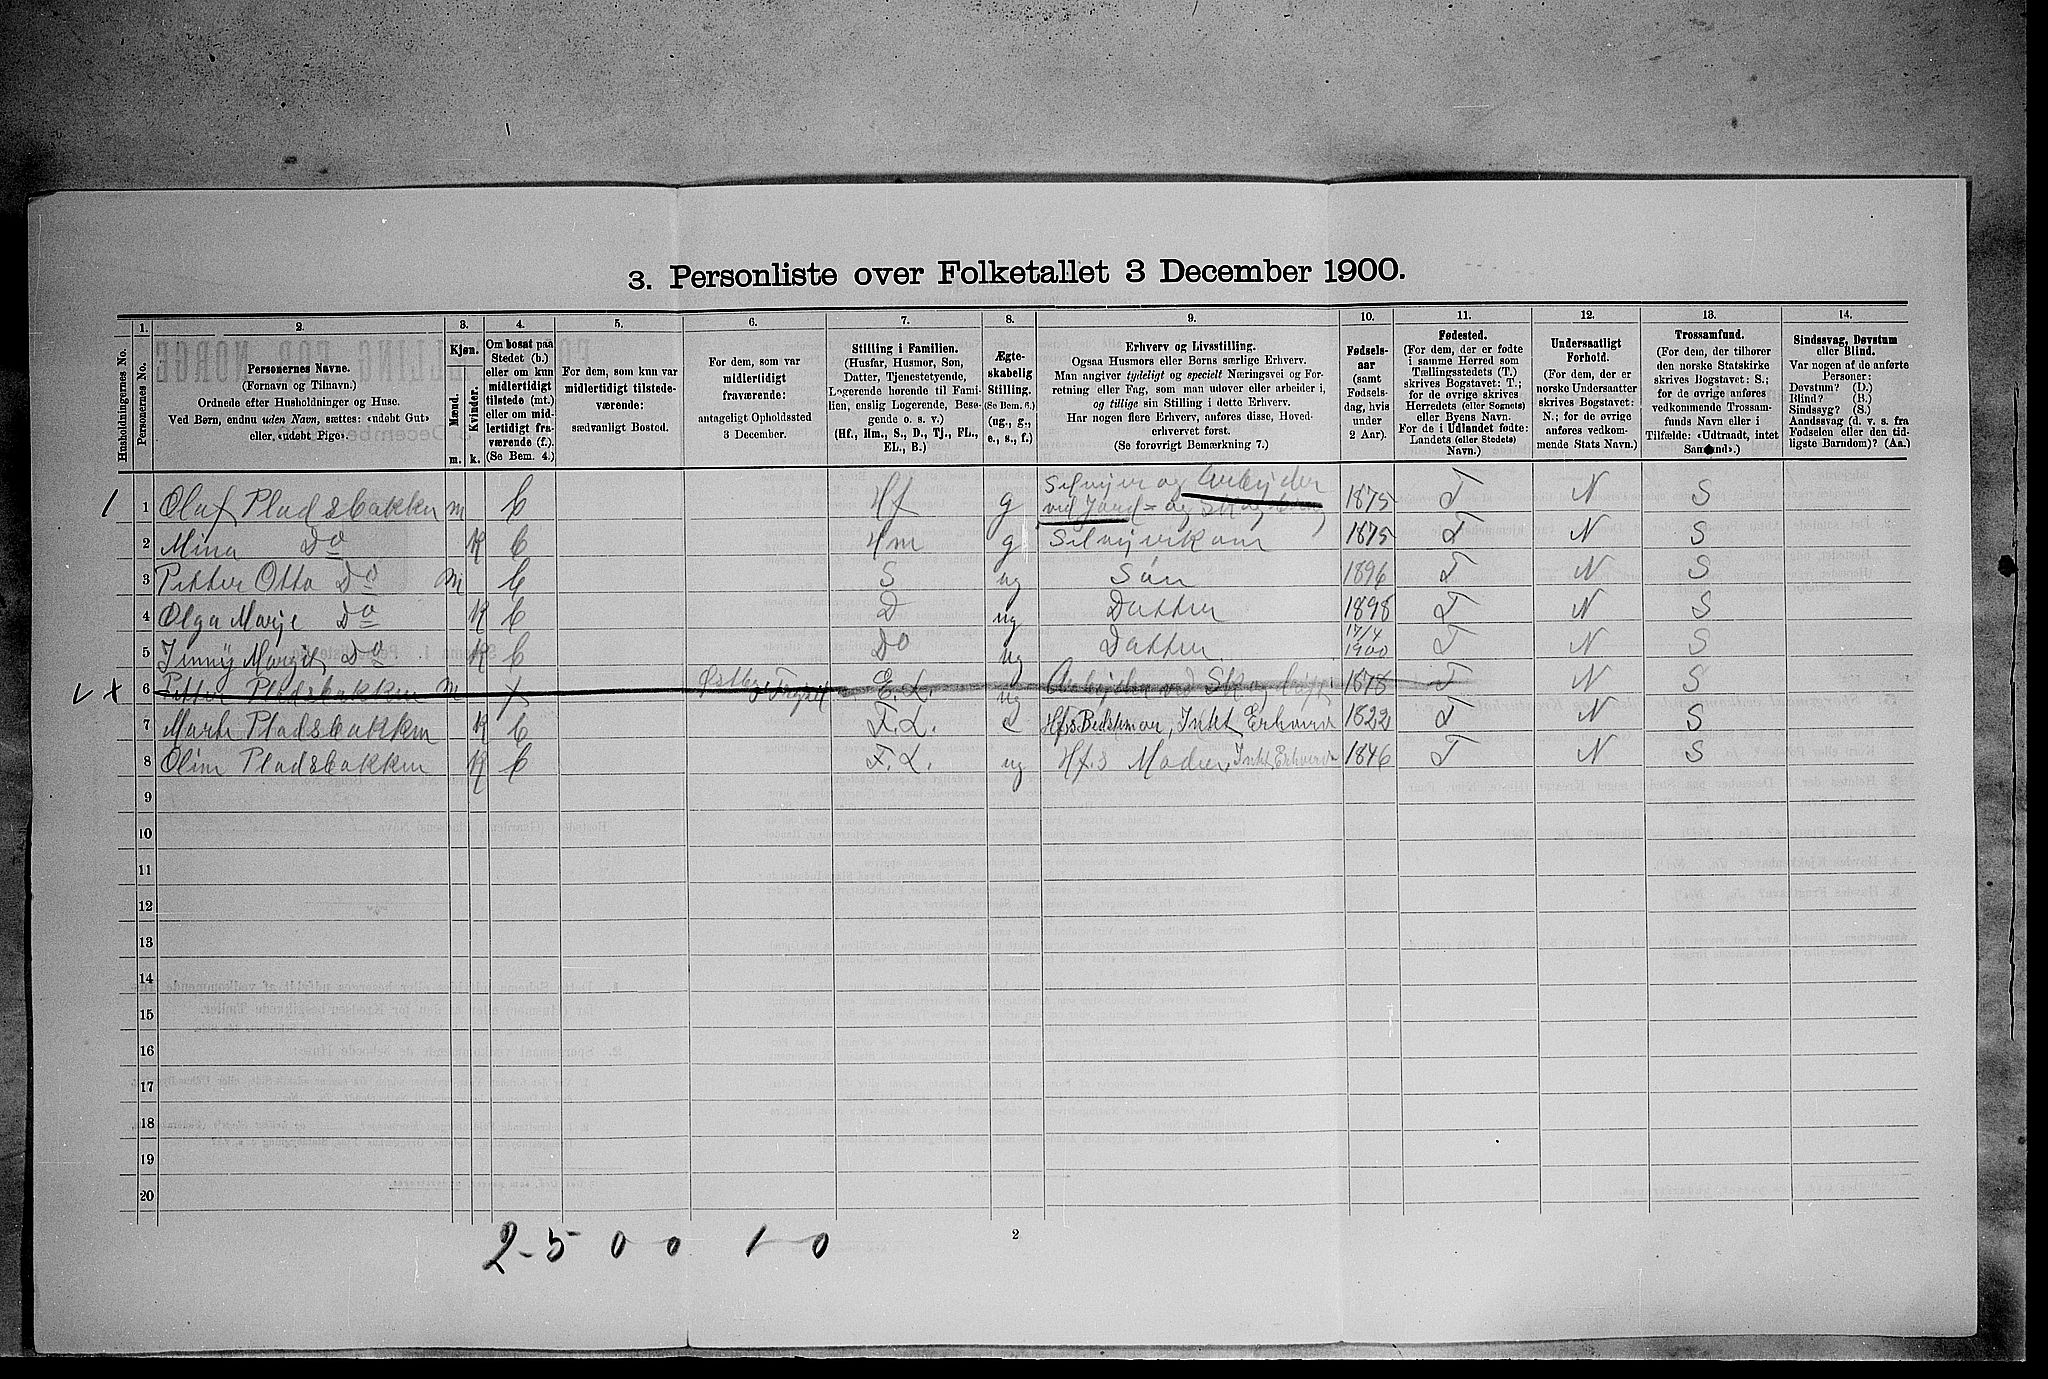 3. Personliste over Folketallet 3 December 1900.
1. 2. 3. 4. 5. 6. 7. 8. 9. 10. 11. 12. 13. 14.
Husholdningernes No.
Personernes No.
Personernes Navne.
(Fornavn og Tilnavn.)
Ordnede efter Husholdninger og Huse.
Ved Børn, endnu uden Navn, sættes: «udøbt Gut»
eller «udøbt Pige».
Kjøn.
Mænd. Kvinder.
m. k.
Om bosat paa
Stedet (b.)
eller om kun
midlertidigt
tilstede (mt.)
eller om mid-
lertidigt fra-
værende (f.).
(Se Bem. 4.)
For dem, som kun var
midlertidigt tilstede-
værende:
sædvanligt Bosted.
For dem, som var
midlertidigt
fraværende:
antageligt Opholdssted
3 December.
Stilling i Familien.
(Husfar, Husmor, Søn,
Datter, Tjenestetyende,
Logerende hørende til Fami-
lien, enslig Logerende, Besø-
gende o. s. v.)
(Hf., Hm., S., D., Tj., FL.,
EL., B.)
Ægte-
skabelig
Stilling.
(Se Bem. 6.)
(ug., g.,
e., s., f.)
Erhverv og Livsstilling.
Ogsaa Husmors eller Børns særlige Erhverv.
Man angiver tydeligt og specielt Næringsvei og For-
retning eller Fag, som man udover eller arbeider i,
og tillige sin Stilling i dette Erhverv.
Har nogen flere Erhverv, anføres disse, Hoved-
erhvervet først.
(Se forøvrigt Bemærkning 7.)
Fødsels-
aar
(samt
Fødsels-
dag, hvis
under
2 Aar).
Fødested.
(For dem, der er fødte
i samme Herred som
Tællingsstedets (T.)
skrives Bogstavet: T.;
for de øvrige skrives
Herredets (eller Sognets)
eller Byens Navn.
For de i Udlandet fødte:
Landets (eller Stedets)
Navn.)
Undersaatligt
Forhold.
(For dem, der er
norske Undersaatter
skrives Bogstavet:
N.; for de øvrige
anføres vedkom-
mende Stats Navn.)
Trossamfund.
(For dem, der tilhører
den norske Statskirke
skrives Bogstavet: S.;
for de øvrige anføres
vedkommende Trossam-
funds Navn eller i
Tilfælde: «Udtraadt, intet
Samfund».)
Sindssvag, Døvstum
eller Blind.
Var nogen af de anførte
Personer:
Døvstum? (D.)
Blind? (B.)
Sindssyg? (S.)
Aandssvag (d. v. s. fra
Fødselen eller den tid-
ligste Barndom)? (Aa.)
1 1 Oluf Pladsbakken m b Hf g Selveier og Arbeider ved Jord- og Skogbrug 1875 T N S
2 Mina Do K b Hm g 1875 T N S
3 Petter Otto Do m b S ug Søn 1896 T N S
4 Olga Marje Do K b D ug Datter 1898 T N S
5 Jenny Margit Do K b Do ug Datter 17/4 1900 T N S
6 Petter Pladsbakken M Østby i Trysil E.L. ug Arbeider ved 1878 T N S
7 Marte Pladsbakken K b F.L. e Hfs Bedstemor, Inkt Erhverv 1822 T N S
8 Oline Pladsbakken K b F.L. ug Hf.s Moder, Inkt Erhverv 1846 T N S
9
10
11
12
13
14
15
16
17
18
19
20
2-5 0 0 1-0
2